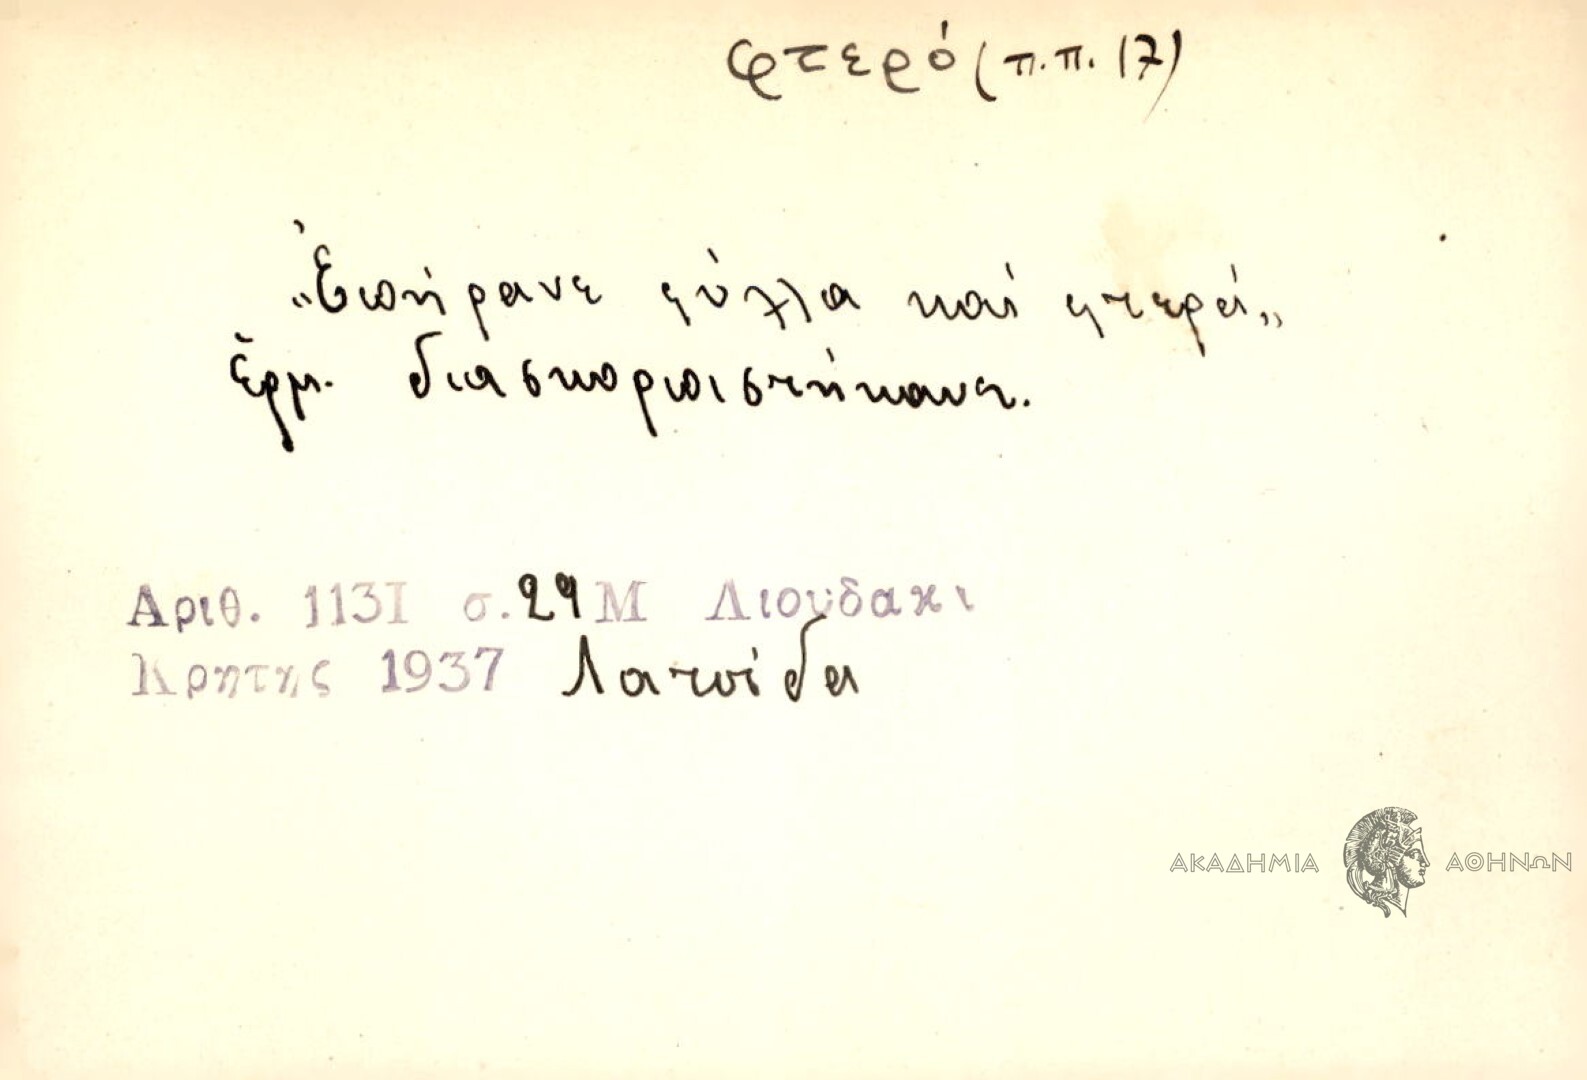 φτερό (π.π. 17)
„Ἐπήρανε φύλλα καί φτερά„
Ἑρμ. διασκορπιστήκανε.
Αριθ. 1131 σ. 29 Μ Λιουδακι
Κρητης 1937 Λατσίδα
ΑΚΑΔΗΜΙΑ ΑΘΗΝΩΝ